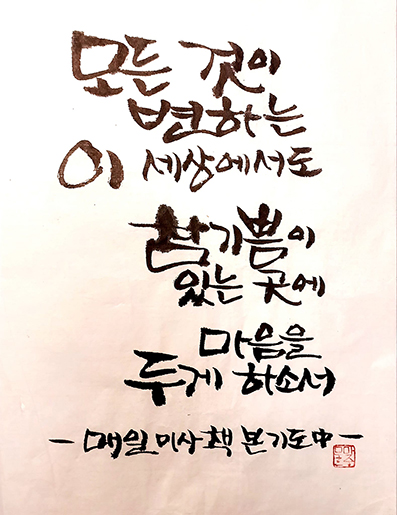 모든 것이
변하는
이 세상에서도
참기쁨이
있는 곳에
마음을
두게 하소서
- 매일미사 책 본기도中 -